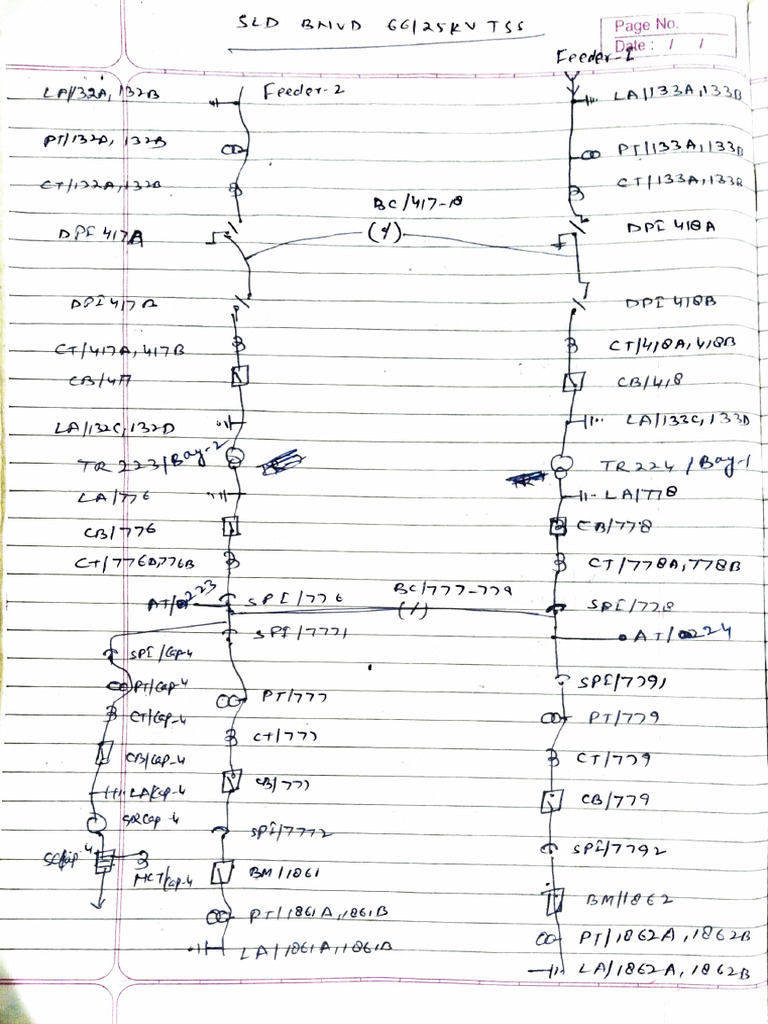 SLD BNVD 66/25KV TSS
Page No.
Date : / /
Feeder-2
Feeder-1
LA/132A, 132B
LA/133A, 133B
PT/132A, 132B
PT/133A, 133B
CT/132A, 132B
CT/133A, 133B
BC/417-18
DPI 417A
DPI 418A
DPI 417B
DPI 418B
CT/417A, 417B
CT/418A, 418B
CB/417
CB/418
LA/132C, 132D
LA/133C, 133D
TR 223/Bay-2
TR 224/Bay-1
LA/776
LA/778
CB/776
CB/778
CT/776A, 776B
CT/778A, 778B
AT/223
SPI/776
BC/777-779
SPI/778
AT/224
SPI/7771
SPI/Cap-4
SPI/7791
PT/Cap-4
PT/777
PT/779
CT/Cap-4
CT/777
CT/779
CB/Cap-4
CB/777
CB/779
LA/Cap-4
SR/Cap-4
SPI/7772
SPI/7792
SC/Cap-4
NCT/Cap-4
BM/1861
BM/1862
PT/1861A, 1861B
PT/1862A, 1862B
LA/1861A, 1861B
LA/1862A, 1862B